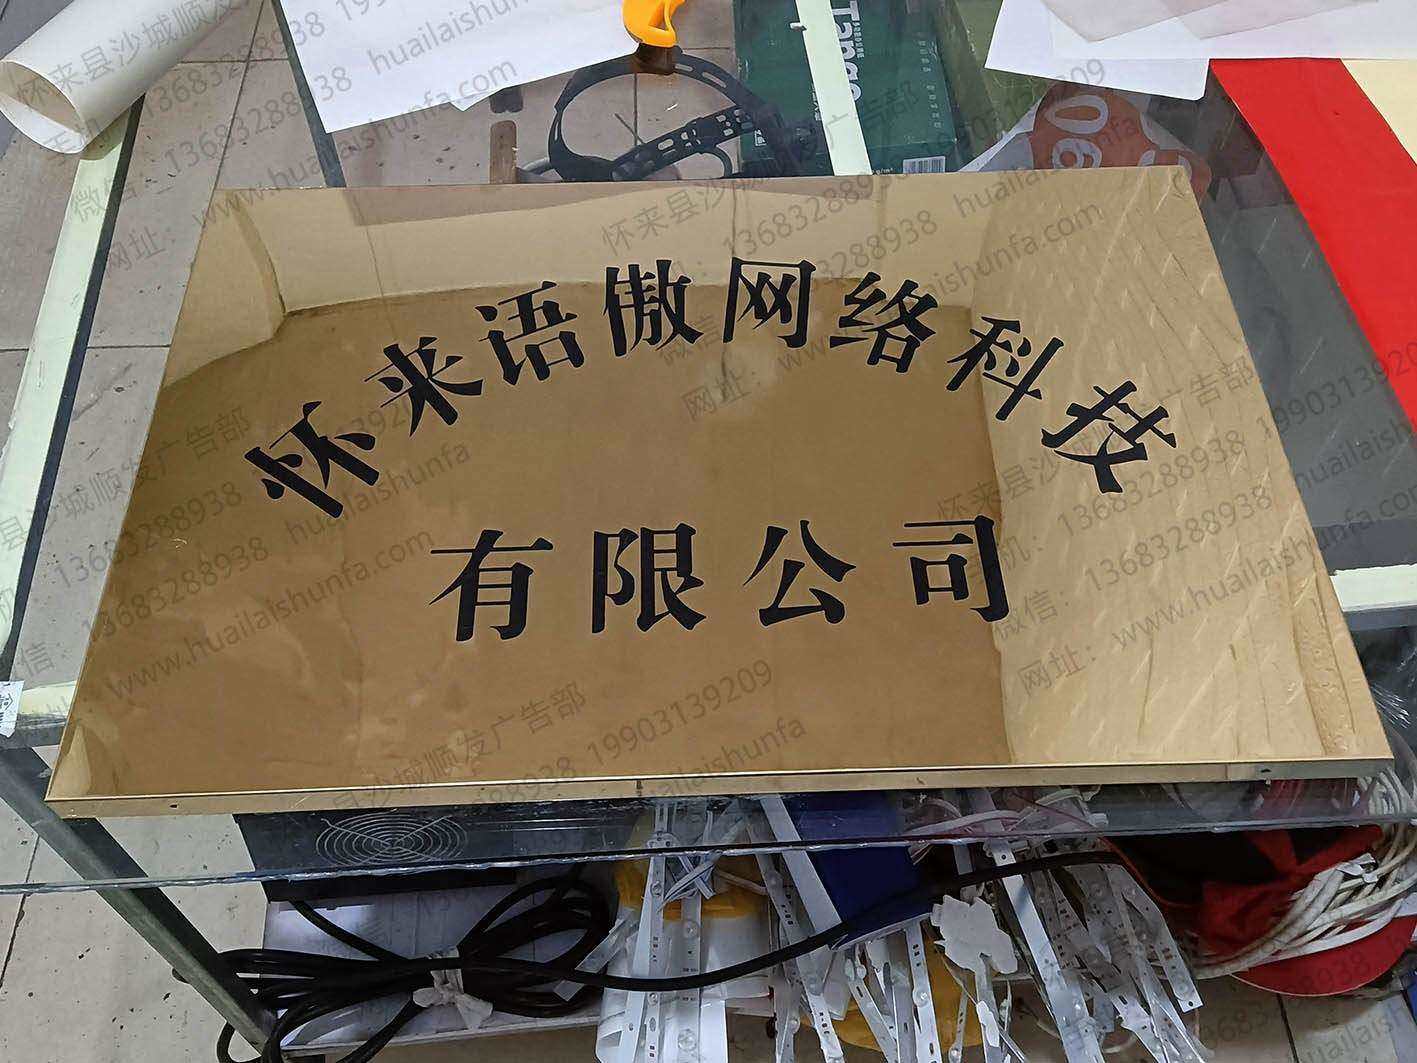 怀来语傲网络科技
有限公司
Tango
怀来县沙城顺发广告部
手机：13683288938 19903139209
微信：13683288938 huailaishunfa
网址：www.huailaishunfa.com